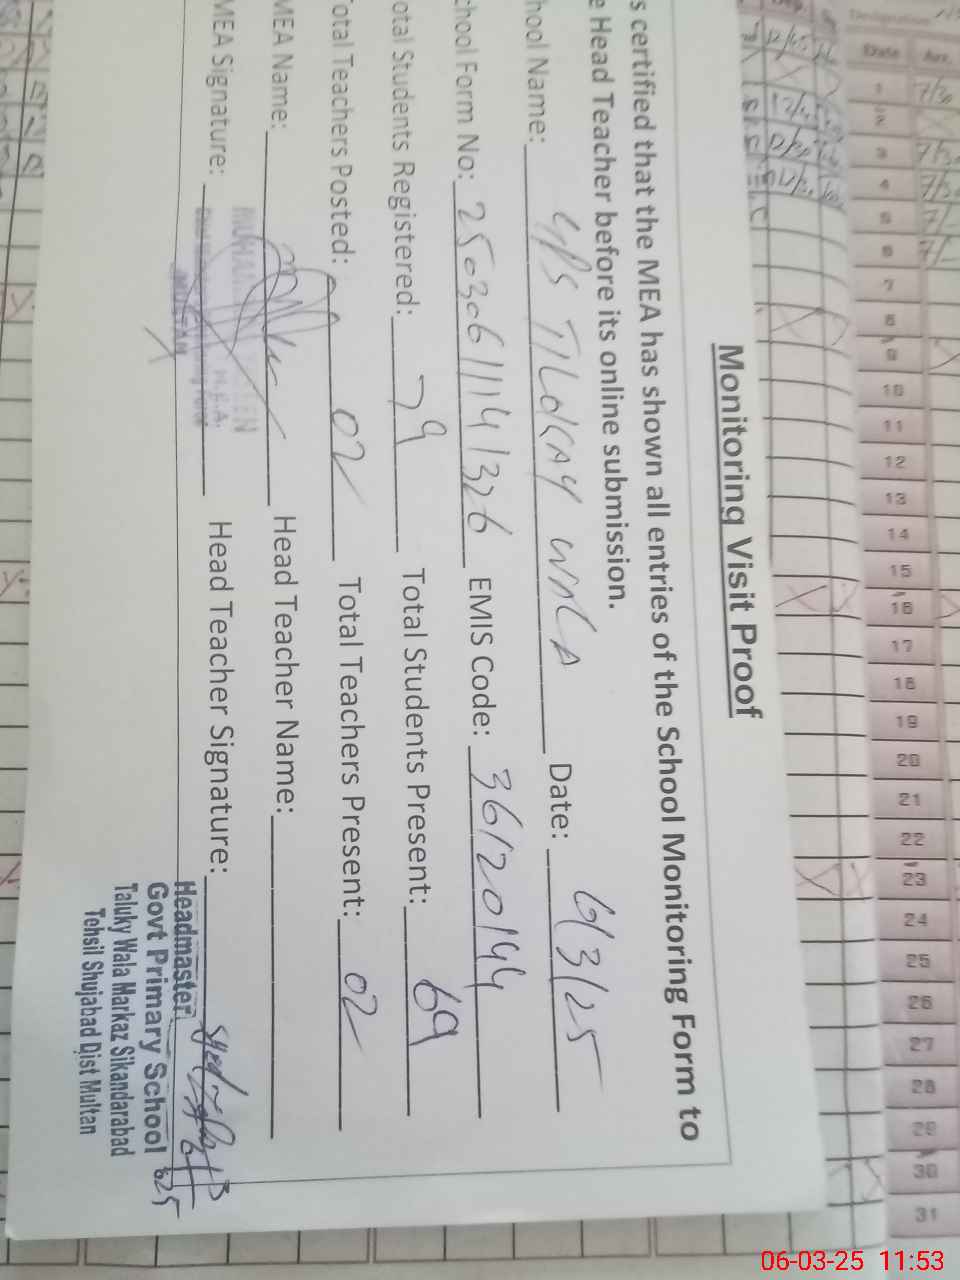 Monitoring Visit Proof
s certified that the MEA has shown all entries of the School Monitoring Form to
e Head Teacher before its online submission.
hool Name: GPS Date: 6/3/25
chool Form No: 25030611141326 EMIS Code: 36120144
otal Students Registered: 79 Total Students Present: 69
otal Teachers Posted: 02 Total Teachers Present: 02
MEA Name: Head Teacher Name:
MEA Signature: Head Teacher Signature:
Headmaster
Govt Primary School
Taluky Wala Markaz Sikandarabad
Tehsil Shujabad Dist Multan
Date
7
8
9
10
11
12
13
14
15
16
17
18
19
20
21
22
23
24
25
26
27
28
29
30
31
06-03-25 11:53